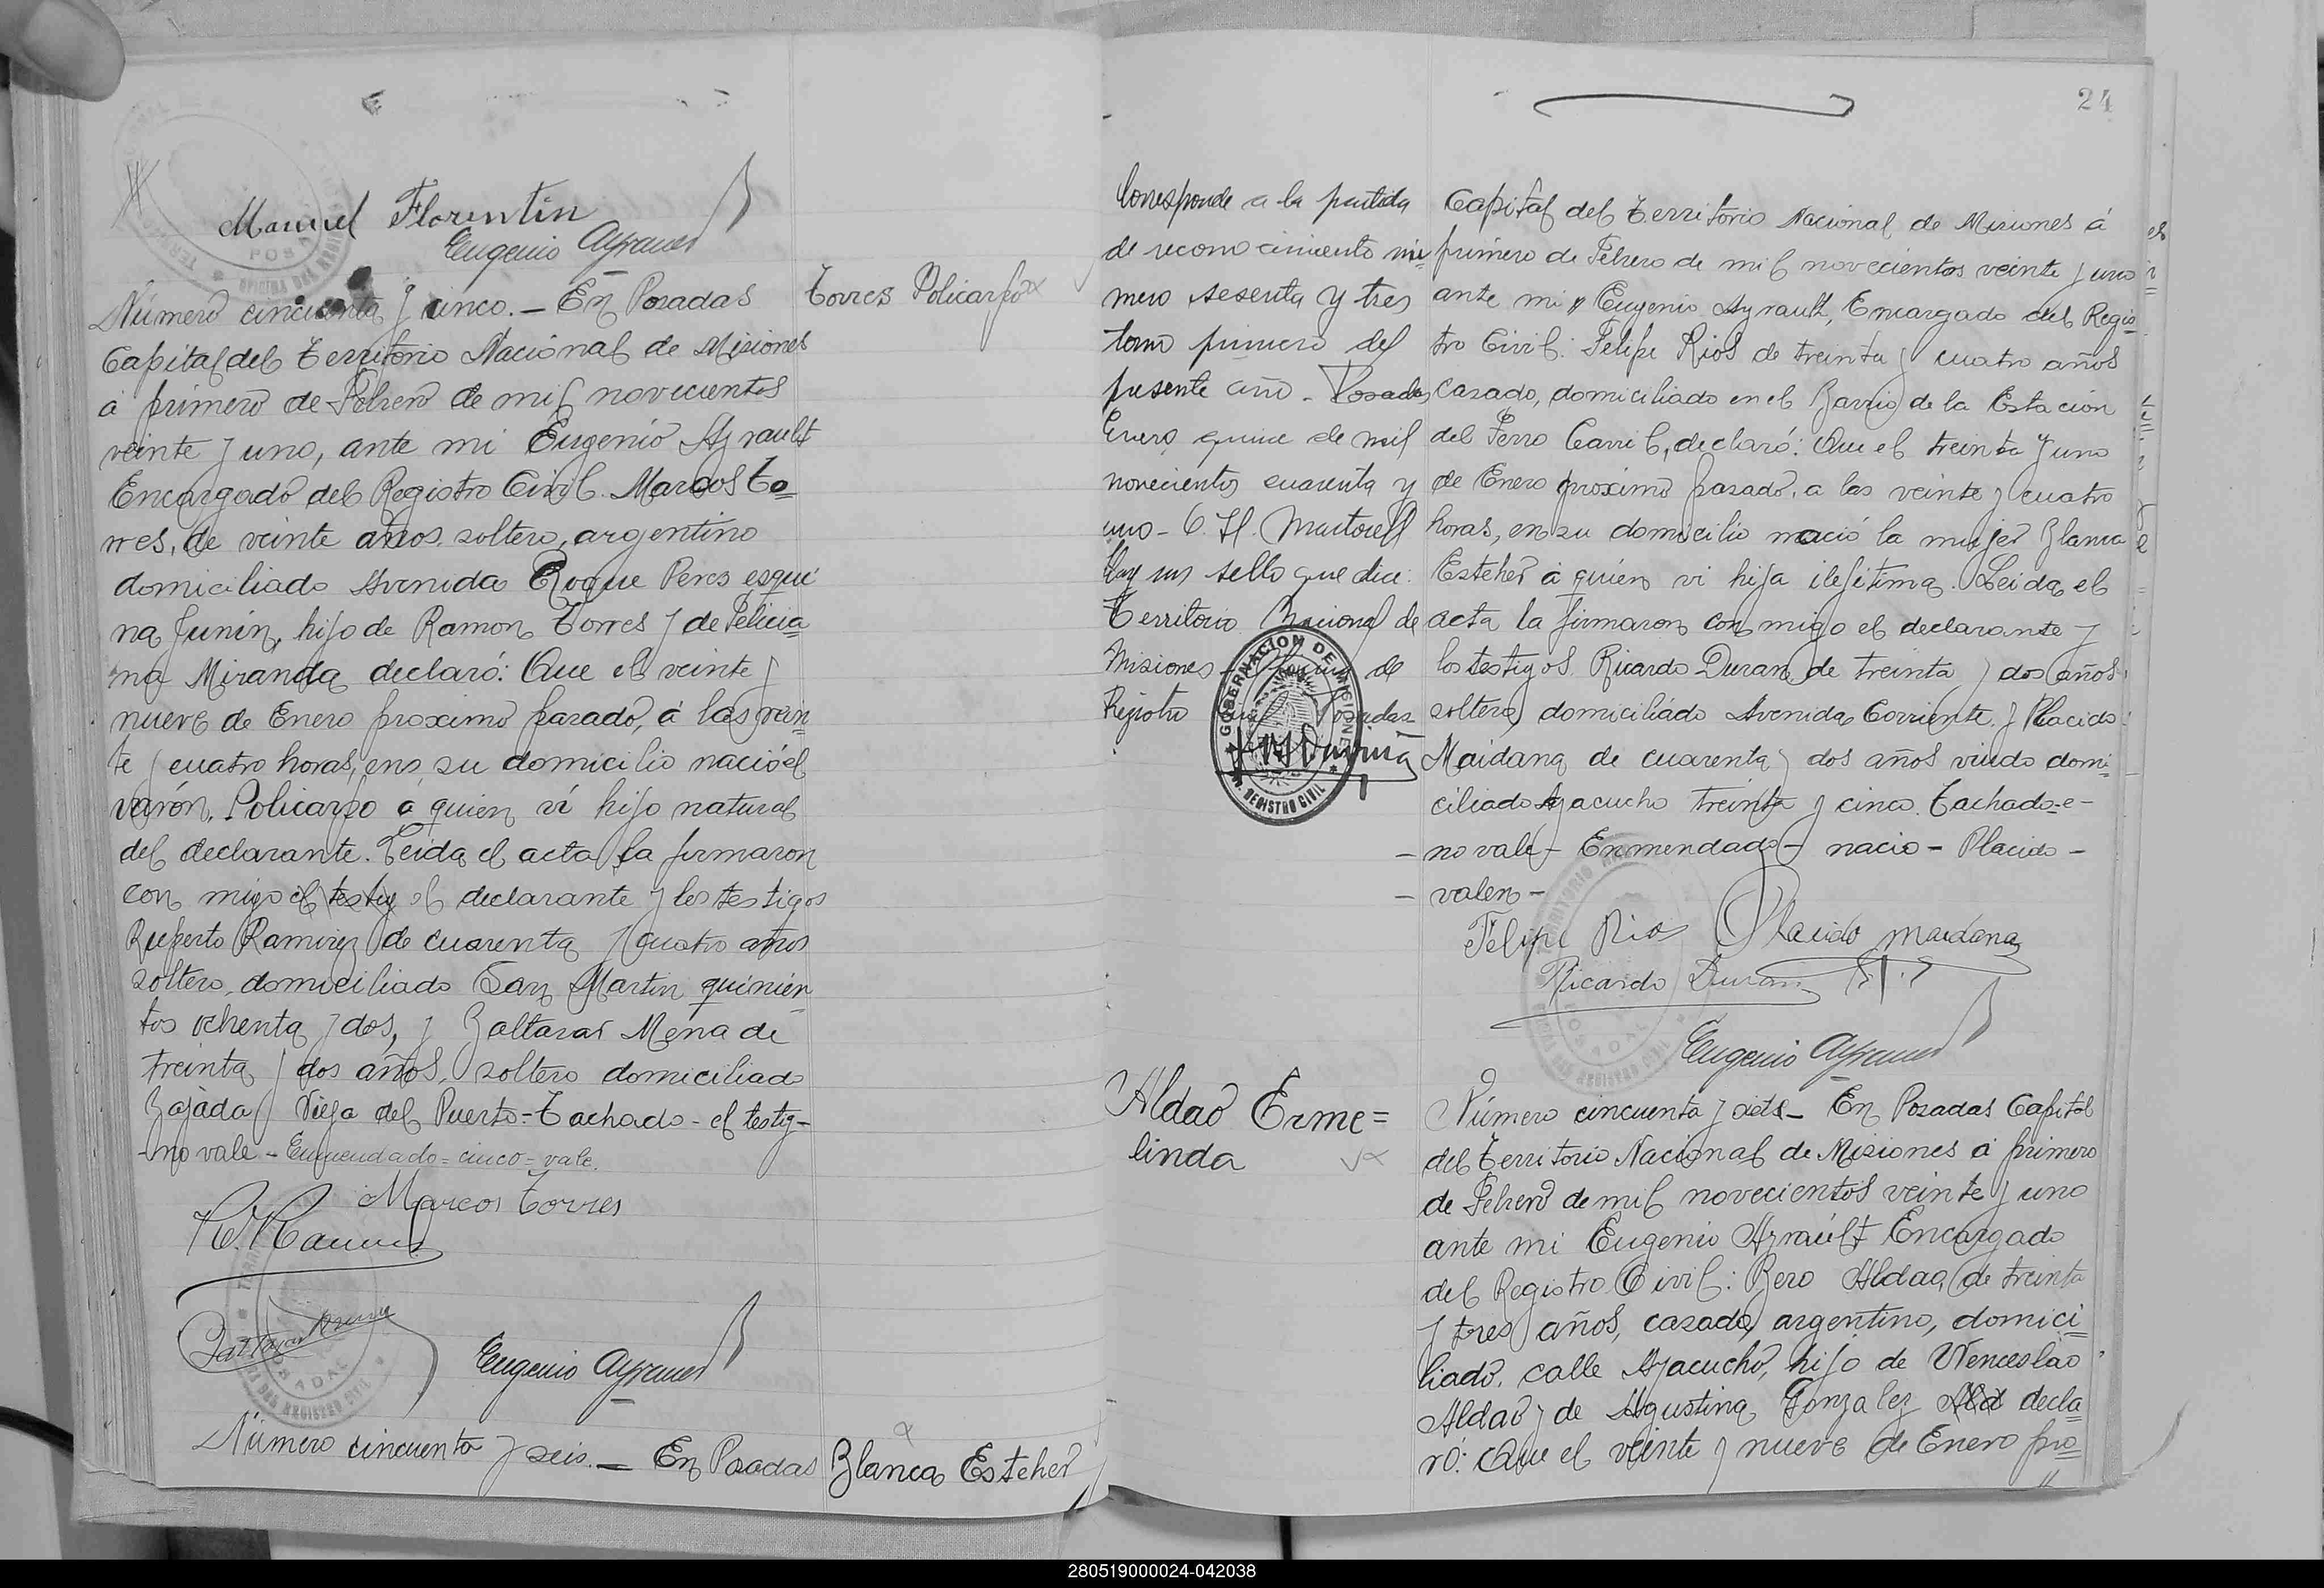 Manuel Florentin
Eugenio Ayrault
Número cincuenta y cinco. – En Posadas
Torres Policarpo
Capital del Territorio Nacional de Misiones
á primero de Febrero de mil novecientos
veinte y uno, ante mi Eugenio Ayrault
Encargado del Registro Civil. Marcos To=
rres, de veinte años, soltero, argentino
domiciliado Avenida Roque Peres esqui
na Junín, hijo de Ramon Torres y de Felicia=
na Miranda declaró: Que el veinte y
nueve de Enero proximo pasado, á las vein=
te y cuatro horas, en su domicilio nació el
varón, Policarpo á quien ví hijo natural
del declarante. Leida el acta la firmaron
con migo el testig el declarante y los testigos
Ruperto Ramirez de cuarenta y cuatro años
soltero, domiciliado San Martin quinien
tos ochenta y dos, y Baltazar Mena de
treinta y dos años, soltero domiciliado
Bajada Vieja del Puerto=Tachado - el testig-
-no vale - Enmendado = cinco = vale.
Marcos Torres
Eugenio Ayrault
Número cincuenta y seis. – En Posadas
Blanca Estcher
24
Corresponde a la partida
de reconocimiento nú=
mero sesenta y tres
tomo primero del
presente año - Posadas,
Enero quince de mil
novecientos cuarenta y
uno - C. H. Martorell
Hay un sello que dice:
Territorio Nacional de
Misiones - de
Registro Posadas
GOBERNACION DE MISIONES
REGISTRO CIVIL
Capital del Territorio Nacional de Misiones á
primero de Febrero de mil novecientos veinte y uno
ante mi Eugenio Ayrault, Encargado del Regis=
tro Civil: Felipe Rios de treinta y cuatro años
casado, domiciliado en el Barrio de la Estación
del Ferro Carril, declaró: Que el treinta y uno
de Enero proximo pasado, a las veinte y cuatro
horas, en su domicilio nació la mujer Blanca
Estcher á quien vi hija ilejitima. Leida el
acta la firmaron con migo el declarante y
los testigos Ricardo Duran de treinta y dos años
soltero, domiciliado Avenida Corriente y Placido
Maidana de cuarenta y dos años viudo domi=
ciliado Ayacucho treinta y cinco. Tachado-e-
- no vale - Enmendado - nacio - Placido -
- valen -
Felipe Rios Placido maidana
Ricardo Duran
Eugenio Ayrault
Aldao Erme=
linda
Número cincuenta y siete – En Posadas Capital
del Territorio Nacional de Misiones á primero
de Febrero de mil novecientos veinte y uno
ante mi Eugenio Ayrault Encargado
del Registro Civil: Bero Aldao, de treinta
y tres años, casado, argentino, domici=
liado, calle Ayacucho, hijo de Wenceslao
Aldao y de Agustina Gonzalez Ald decla=
ró: Que el veinte y nueve de Enero pro=
280519000024-042038